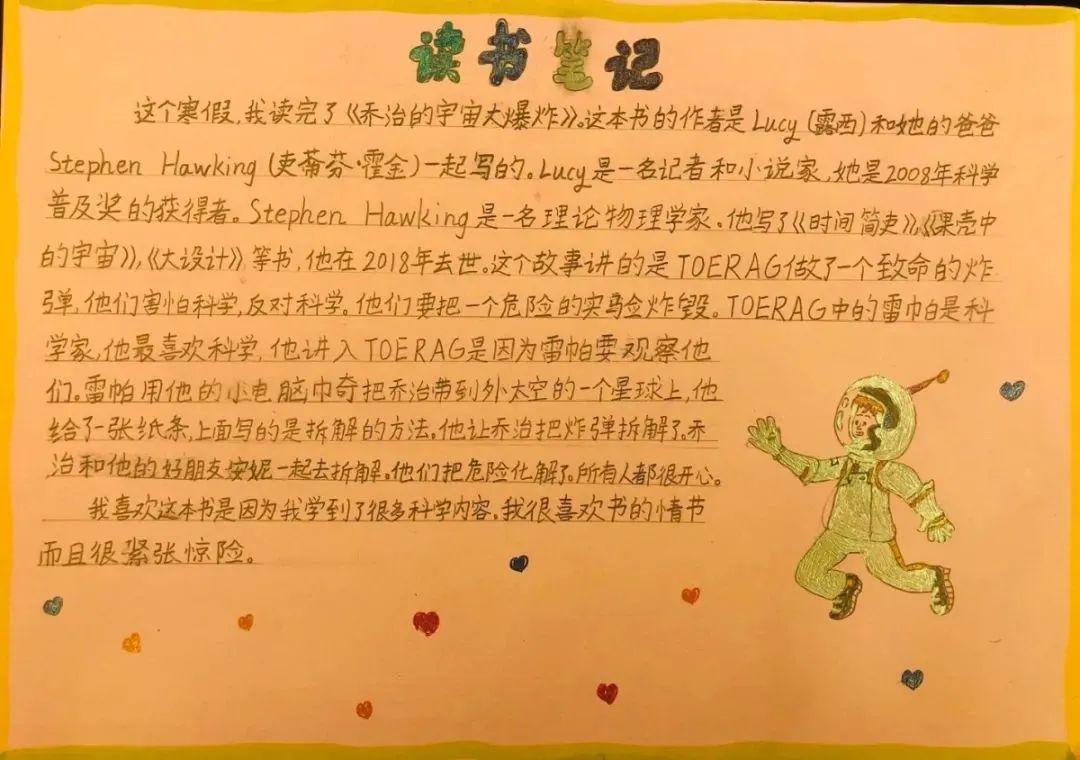 读书笔记
这个寒假,我读完了《乔治的宇宙大爆炸》。这本书的作者是Lucy(露西)和她的爸爸
Stephen Hawking(史蒂芬·霍金)一起写的。Lucy是一名记者和小说家,她是2008年科学
普及奖的获得者。Stephen Hawking是一名理论物理学家。他写了《时间简史》,《果壳中
的宇宙》,《大设计》等书,他在2018年去世。这个故事讲的是TOERAG做了一个致命的炸
弹,他们害怕科学,反对科学。他们要把一个危险的实验炸毁。TOERAG中的雷帕是科
学家,他最喜欢科学,他讲入TOERAG是因为雷帕要观察他
们。雷帕用他的小电脑巾奇把乔治带到外太空的一个星球上,他
给了一张纸条,上面写的是拆解的方法。他让乔治把炸弹拆解了。乔
治和他的好朋友安妮一起去拆解。他们把危险化解了。所有人都很开心。
我喜欢这本书是因为我学到了很多科学内容。我很喜欢书的情节
而且很紧张惊险。